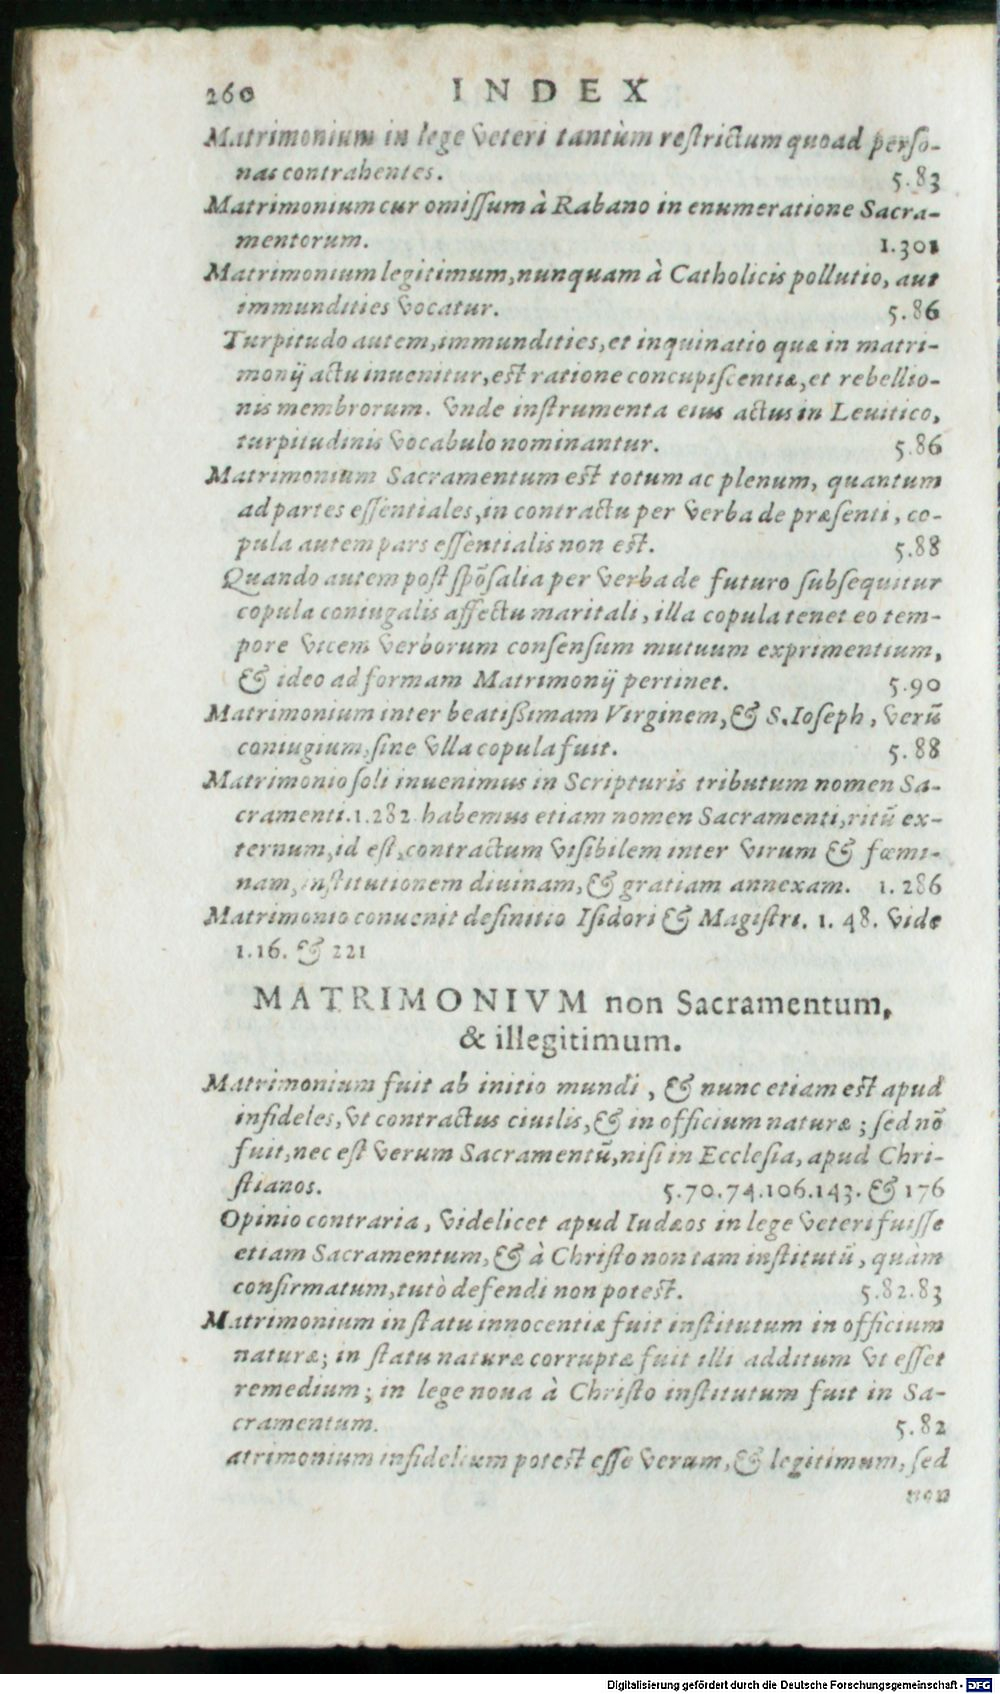 260 INDEX
Matrimonium in lege veteri tantùm reſtrictum quoad perſo-
nas contrahentes. 5.83
Matrimonium cur omiſſum à Rabano in enumeratione Sacra-
mentorum. 1.301
Matrimonium legitimum, nunquam à Catholicis pollutio, aut
immundities vocatur. 5.86
Turpitudo autem, immundities, et inquinatio quæ in matri-
monij actu inuenitur, eſt ratione concupiſcentiæ, et rebellio-
nis membrorum. Vnde inſtrumenta eius actus in Leuitico,
turpitudinis vocabulo nominantur. 5.86
Matrimonium Sacramentum eſt totum ac plenum, quantum
ad partes eſſentiales, in contractu per verba de præſenti, co-
pula autem pars eſſentialis non eſt. 5.88
Quando autem poſt ſpõſalia per verba de futuro ſubſequitur
copula coniugalis affectu maritali, illa copula tenet eo tem-
pore vicem verborum conſenſum mutuum exprimentium,
& ideo ad formam Matrimonij pertinet. 5.90
Matrimonium inter beatißimam Virginem, & S. Ioſeph, verũ
coniugium, ſine vlla copula fuit. 5.88
Matrimonio ſoli inuenimus in Scripturis tributum nomen Sa-
cramenti. 1.282 habemus etiam nomen Sacramenti, ritũ ex-
ternum, id eſt, contractum viſibilem inter virum & fœmi-
nam, inſtitutionem diuinam, & gratiam annexam. 1.286
Matrimonio conuenit definitio Iſidori & Magiſtri. 1. 48. vide
1.16. & 221
MATRIMONIVM non Sacramentum,
& illegitimum.
Matrimonium fuit ab initio mundi, & nunc etiam eſt apud
infideles, vt contractus ciuilis, & in officium naturæ; ſed nõ
fuit, nec eſt verum Sacramentũ, niſi in Eccleſia, apud Chri-
ſtianos. 5.70.74.106.143. & 176
Opinio contraria, videlicet apud Iudæos in lege veteri fuiſſe
etiam Sacramentum, & à Chriſto non tam inſtitutũ, quàm
confirmatum, tutò defendi non poteſt. 5.82.83
Matrimonium in ſtatu innocentiæ fuit inſtitutum in officium
naturæ; in ſtatu naturæ corruptæ fuit illi additum vt eſſet
remedium; in lege noua à Chriſto inſtitutum fuit in Sa-
cramentum. 5.82
atrimonium infidelium poteſt eſſe verum, & legitimum, ſed
non
Digitalisierung gefördert durch die Deutsche Forschungsgemeinschaft - DFG